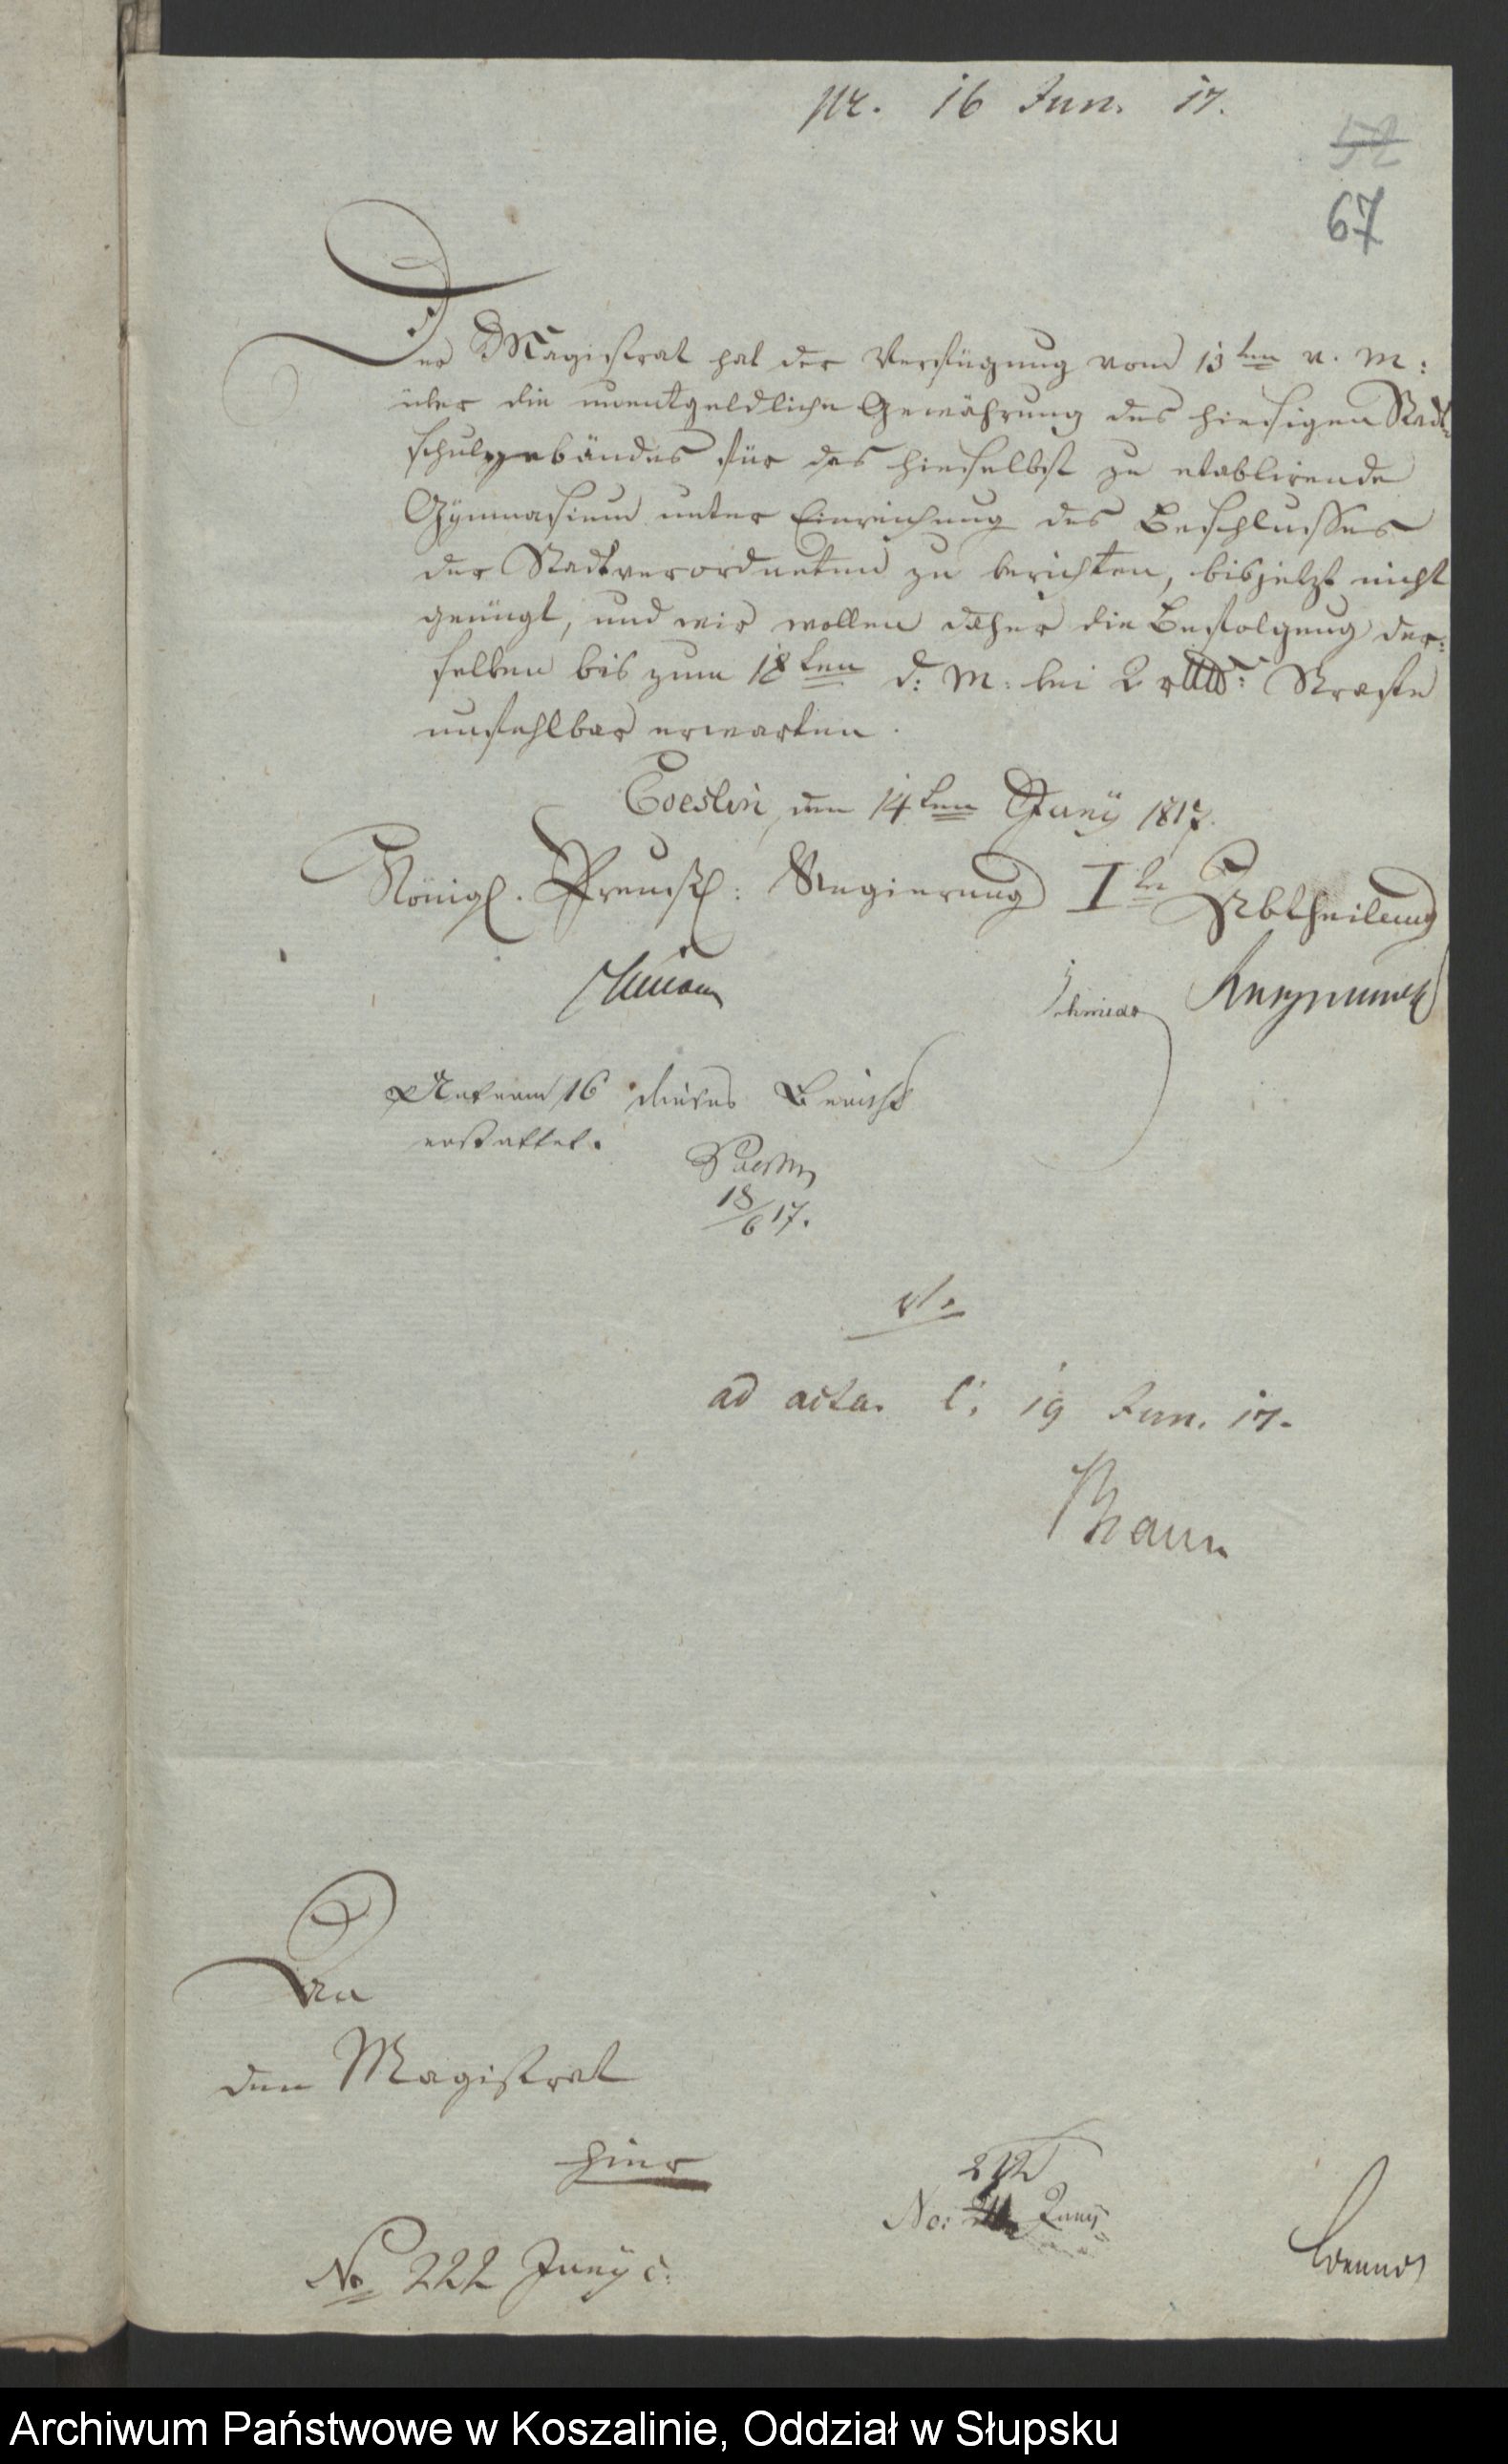 pr. 16 Jun. 17.
52
67
Der Magistrat hat der Verfügung vom 13ten v. M:
über die unentgeldliche Gewährung des hiesigen Stadt-
schulgebäudes für das hieselbst zu etablirende
Gÿmnasium unter Einreichung des Beschlusses
der Stadtverordneten zu berichten, bisjetzt nicht
genügt, und wir wollen daher die Befolgung der-
selben bis zum 18ten d: M: bei 2 rtlr: Strafe
unfehlbar erwarten.
Coeslin, den 14ten Junÿ 1817.
Königl. Preuß: Regierung Ite Abtheilung
16 dieses Bericht
erstattet.
18/6 17.
ad acta. C. 19 Jun. 17.
Braun
An
den Magistrat
hier
212
No: Juny
No 222 Juny c: